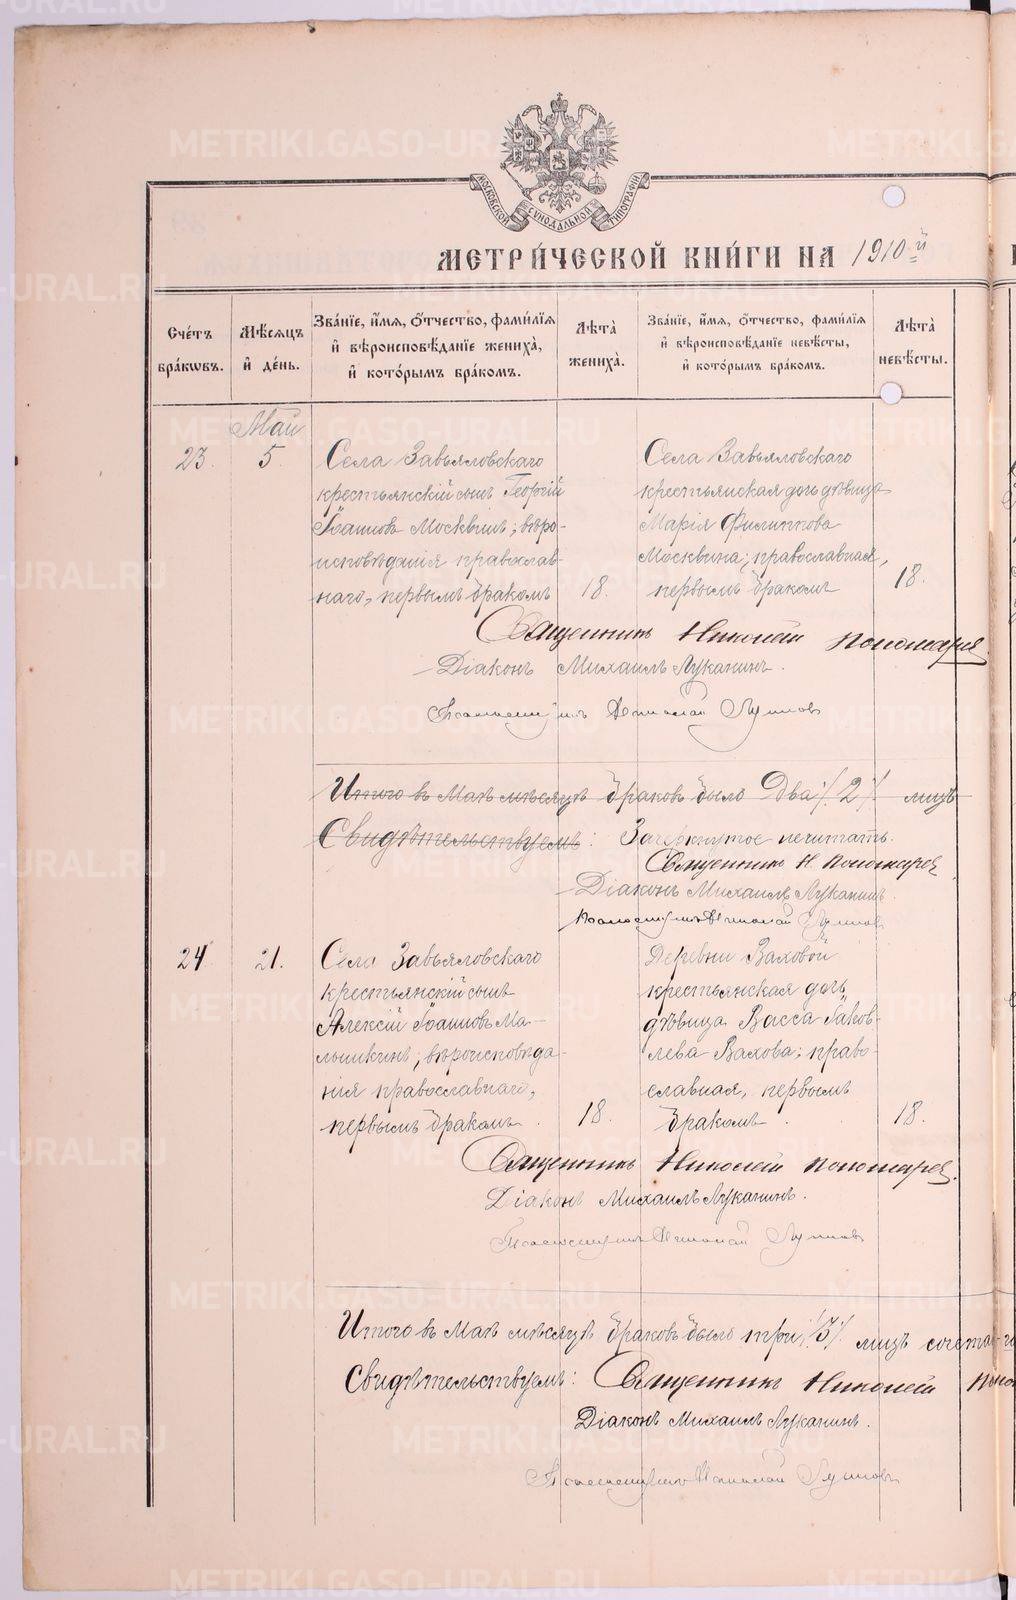 МОСКОВСКОЙ СѴНОДАЛЬНОЙ ТИПОГРАФІИ
МЕТРИ́ЧЕСКОЙ КНИ́ГИ НА 1910й
Сче́тъ бра́кωвъ.
Мѣ́сяцъ и҆ де́нь.
Зва́нїе, и҆́мя, ѻ҆́тчество, фами́лїя и҆ вѣроисповѣ́данїе жениха̀, и҆ кото́рымъ бра́комъ.
Лѣ́та жениха̀.
Зва́нїе, и҆́мя, ѻ҆́тчество, фами́лїя и҆ вѣроисповѣ́данїе невѣ́сты, и҆ кото́рымъ бра́комъ.
Лѣ́та невѣ́сты.
Май
23.
5.
Села Завьяловскаго
крестьянскій сынъ Георгій
Іоанновъ Москвинъ; вѣро-
исповѣданія православ-
наго, первымъ бракомъ
18.
Села Завьяловскаго
крестьянская дочь дѣвица
Марія Филиппова
Москвина; православная,
первымъ бракомъ
18.
Священникъ Николай Пономарев
Діаконъ Михаилъ Луканинъ.
Псаломщикъ Николай
Итого въ Маѣ мѣсяцѣ браковъ было Два /2/ лицъ
Свидѣтельствуемъ: Зачеркнутое нечитать.
Священникъ Н Пономарев
Діаконъ Михаилъ Луканинъ.
Псаломщикъ Николай
24
21.
Села Завьяловскаго
крестьянскій сынъ
Алексій Іоанновъ Ма-
льшикинъ; вѣроисповѣда-
нія православнаго,
первымъ бракомъ.
18.
Деревни Ваховой
крестьянская дочь
дѣвица Васса Іаков-
лева Вахова; право-
славная, первымъ
бракомъ.
18.
Священникъ Николай Пономарев.
Діаконъ Михаилъ Луканинъ.
Псаломщикъ Николай
Итого въ Маѣ мѣсяцѣ браковъ было три /3/ лицъ сочета-
Свидѣтельствуемъ: Священникъ Николай Поно
Діаконъ Михаилъ Луканинъ.
Псаломщикъ Николай
METRIKI.GASO-URAL.RU